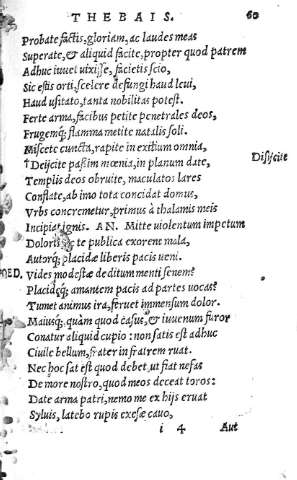 THEBAIS. 60
Probate factis, gloriam, ac laudes meas
Superate, & aliquid facite, propter quod patrem
Adhuc iuuet uixisse, facietis scio,
Sic estis orti, scelere defungi haud leui,
Haud usitato, tanta nobilitas potest.
Ferte arma, facibus petite penetrales deos,
Frugemq́; flamma metite natalis soli.
Miscete cuncta, rapite in exitium omnia,
†Deijcite paßim mœnia, in planum date, Disijcite
Templis deos obruite, maculatos lares
Conflate, ab imo tota concidat domus,
Vrbs concremetur, primus à thalamis meis
Incipiat ignis. AN. Mitte uiolentum impetum
Doloris, te publica exorent mala,
Autorq́; placidæ liberis pacis ueni.
OED. Vides modestæ deditum menti senem?
Placidæq́; amantem pacis ad partes uocas?
Tumet animus ira, feruet immensum dolor.
Maiusq́; quàm quod casus, & iuuenum furor
Conatur aliquid cupio: non satis est adhuc
Ciuile bellum, frater in fratrem ruat.
Nec hoc sat est quod debet, ut fiat nefas
De more nostro, quod meos deceat toros:
Date arma patri, nemo me ex his eruat
Syluis, latebo rupis exesæ cauo,
i 4 Aut